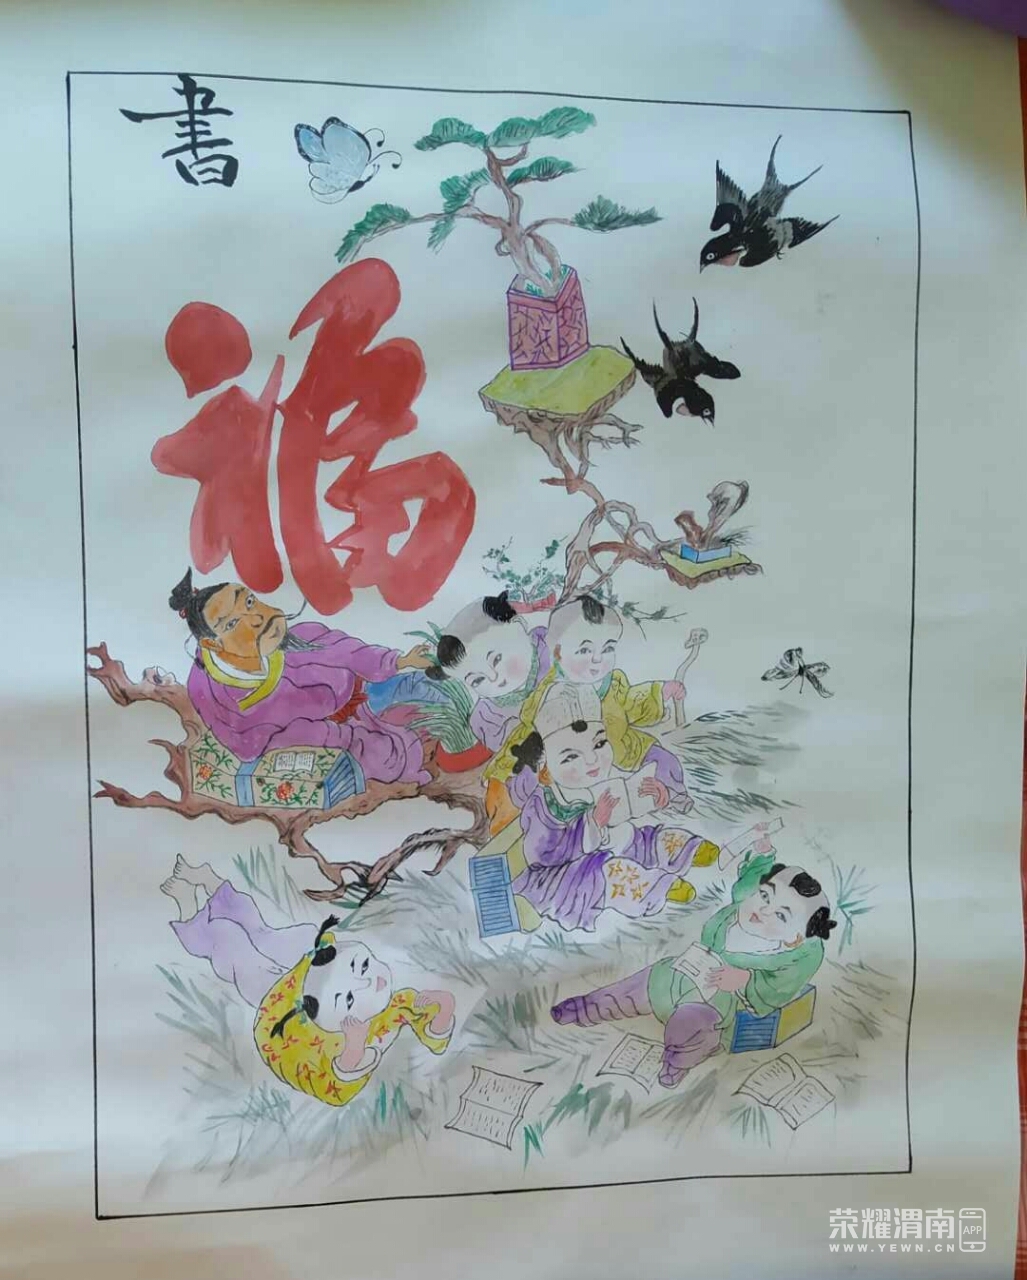 書
福
荣耀渭南
APP
WWW.YEWN.CN